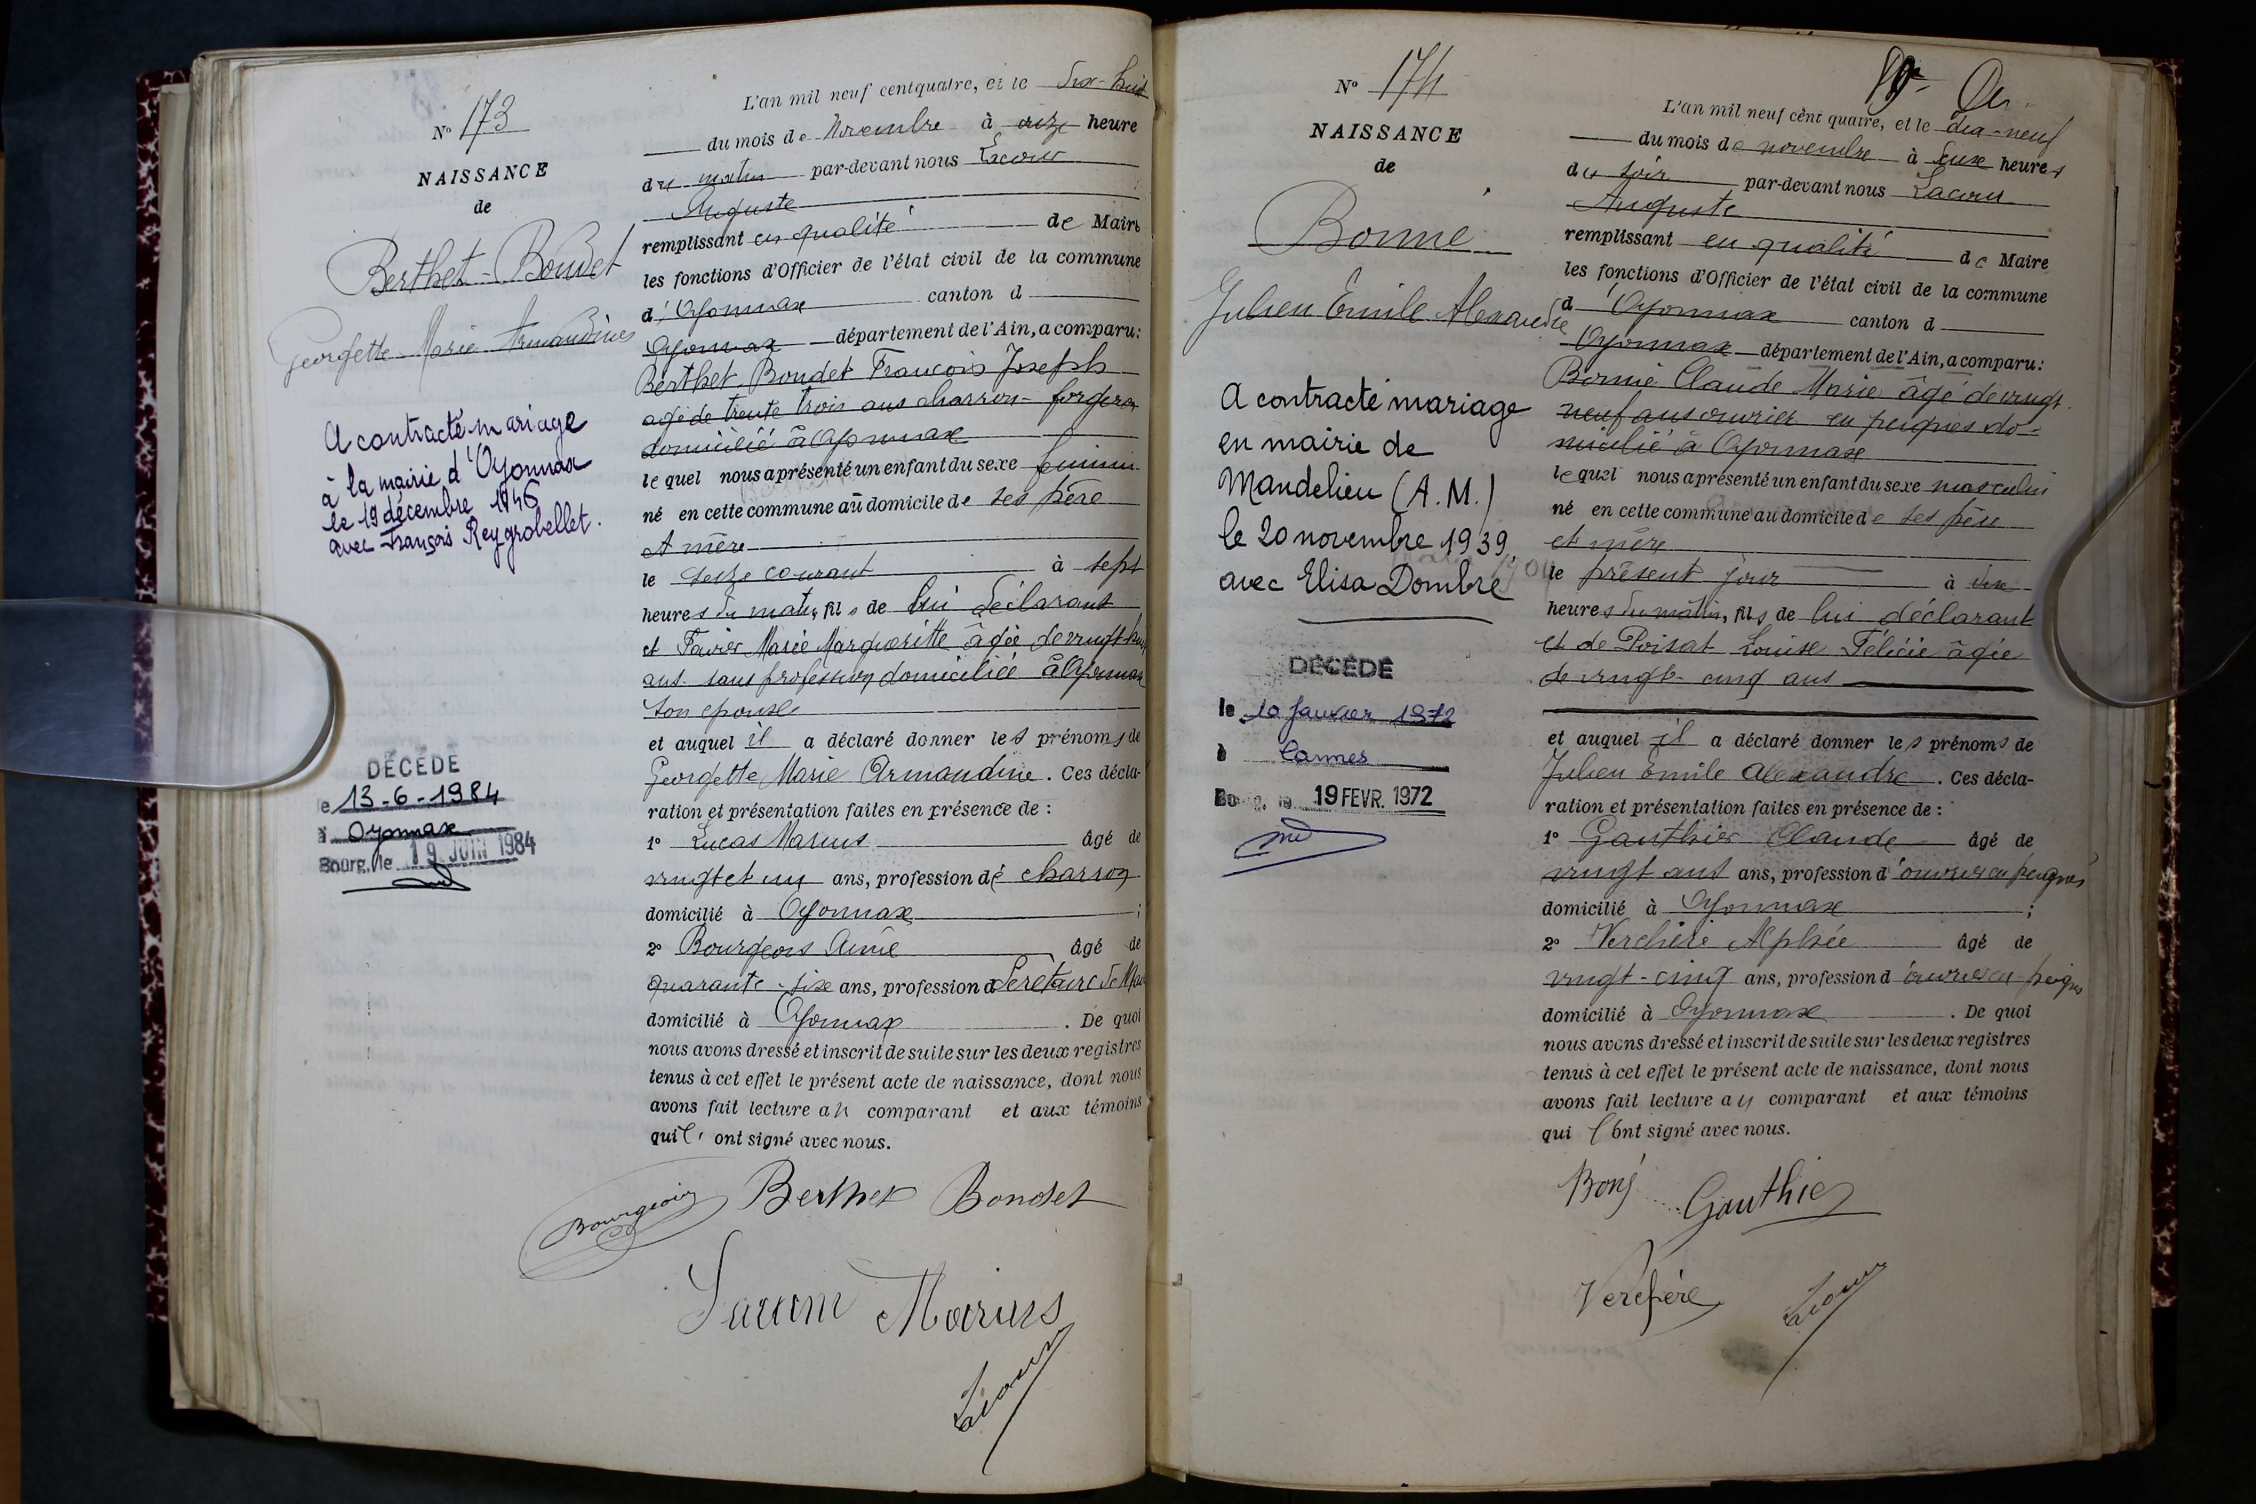 N° 173
NAISSANCE
de
Berthet-Boudet
Georgette Marie Armandine
A contracté mariage
à la mairie d'Oyonnax
le 19 décembre 1946
avec François Reygrobellet.
DÉCÉDÉ
le 13-6-1984
à Oyonnax
Bourg, le 19 JUIN 1984
L'an mil neuf cent quatre, et le dix-huit
du mois de Novembre à onze heure
du matin par-devant nous Lacour
Auguste
remplissant en qualité de Maire
les fonctions d'Officier de l'état civil de la commune
d'Oyonnax canton d
Oyonnax département de l'Ain, a comparu:
Berthet Boudet François Joseph
agé de trente trois ans charron-forgeron
domicilié à Oyonnax
lequel nous a présenté un enfant du sexe féminin
né en cette commune au domicile de ses père
et mère
le seize courant à sept
heures du matin, fils de lui déclarant
et Favier Marie Marguerite âgée de vingt-huit
ans sans profession domiciliée à Oyonnax
son épouse
et auquel il a déclaré donner les prénoms de
Georgette Marie Armandine. Ces décla-
ration et présentation faites en présence de :
1° Lucas Marius âgé de
vingt et un ans, profession de charron
domicilié à Oyonnax ;
2° Bourgeois Aimé âgé de
quarante-six ans, profession d Secrétaire de Mairie
domicilié à Oyonnax. De quoi
nous avons dressé et inscrit de suite sur les deux registres
tenus à cet effet le présent acte de naissance, dont nous
avons fait lecture au comparant et aux témoins
qui l'ont signé avec nous.
Bourgeois Berthet Boudet
Marius
Lacour
N° 174
NAISSANCE
de
Bonné
Julien Emile Alexandre
A contracté mariage
en mairie de
Mandelieu (A.M.)
le 20 novembre 1939,
avec Elisa Dombre
DÉCÉDÉ
le 10 janvier 1972
à Cannes
Bourg, le 19 FEVR. 1972
L'an mil neuf cent quatre, et le dix-neuf
du mois de novembre à deux heures
du soir par-devant nous Lacour
Auguste
remplissant en qualité de Maire
les fonctions d'Officier de l'état civil de la commune
d'Oyonnax canton d
Oyonnax département de l'Ain, a comparu:
Bonné Claude Marie âgé de vingt
neuf ans ouvrier en peignes do-
micilié à Oyonnax
lequel nous a présenté un enfant du sexe masculin
né en cette commune au domicile de ses père
et mère
le présent jour à
heures du matin, fils de lui déclarant
et de Poisat Louise Félicie âgée
de vingt-cinq ans
et auquel il a déclaré donner les prénoms de
Julien Emile Alexandre. Ces décla-
ration et présentation faites en présence de :
1° Gauthier Claude âgé de
vingt ans ans, profession d'ouvrier en peignes
domicilié à Oyonnax ;
2° Verchère Alphée âgé de
vingt-cinq ans, profession d'ouvrier en peignes
domicilié à Oyonnax. De quoi
nous avons dressé et inscrit de suite sur les deux registres
tenus à cet effet le présent acte de naissance, dont nous
avons fait lecture au comparant et aux témoins
qui l'ont signé avec nous.
Gauthier
Verchère Lacour